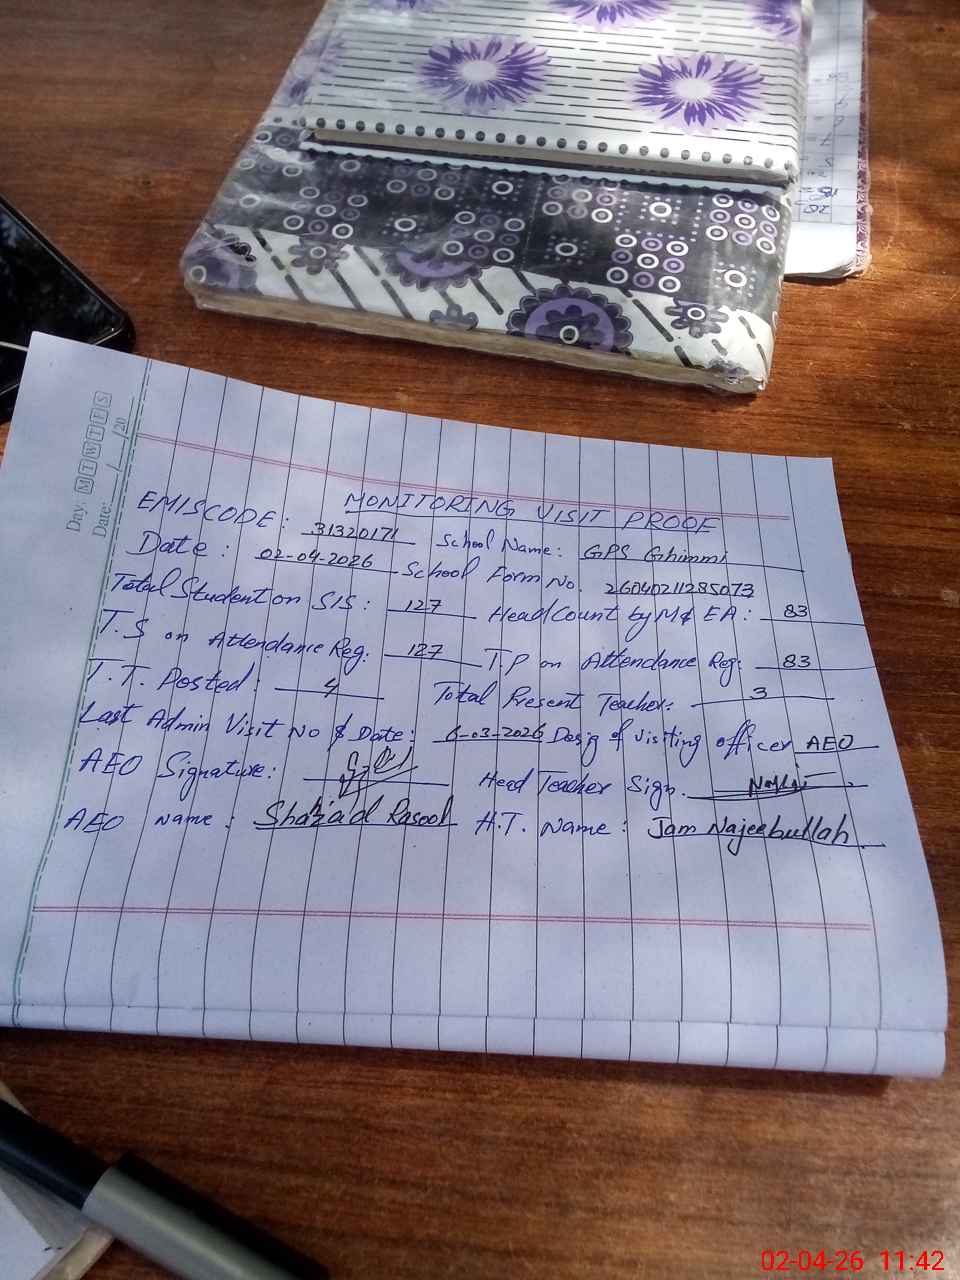 Day: M T W T F S
Date: __/__/20__
MONITORING VISIT PROOF
EMISCODE: 31320171 School Name: GPS Ghimmi
Date: 02-04-2026 School Form No. 26040211285073
Total Student on SIS: 127 Head Count by M& EA: 83
T.S on Attendance Reg. 127 T.P on Attendance Reg: 83
T.T. Posted: 4 Total Present Teacher: 3
Last Admin Visit No & Date: 6-03-2026 Desig of visiting officer AEO
AEO Signature: Head Teacher Sign.
AEO Name: Shahzad Rasool H.T. Name: Jam Najeebullah
02-04-26 11:42